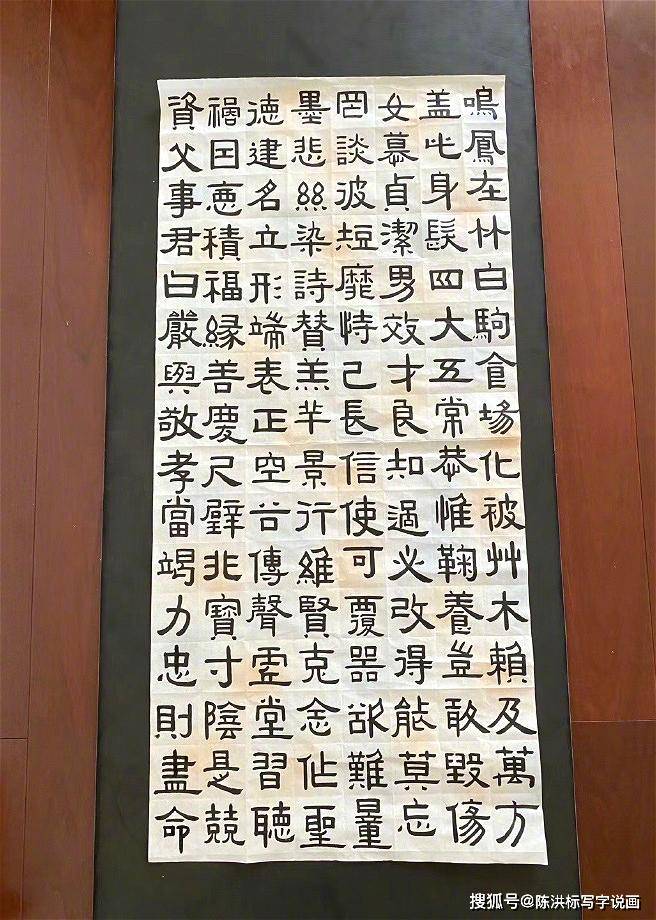 鳴鳳在竹白駒食場化被艸木賴及萬方
盖此身髮四大五常恭惟鞠養豈敢毀傷
女慕貞潔男效才良知過必改得能莫忘
罔談彼短靡恃己長信使可覆器欲難量
墨悲絲染詩贊羔羊景行維賢克念作聖
德建名立形端表正空谷傳聲虛堂習聽
禍因惡積福緣善慶尺璧非寶寸陰是競
資父事君曰嚴與敬孝當竭力忠則盡命
搜狐号@陈洪标写字说画